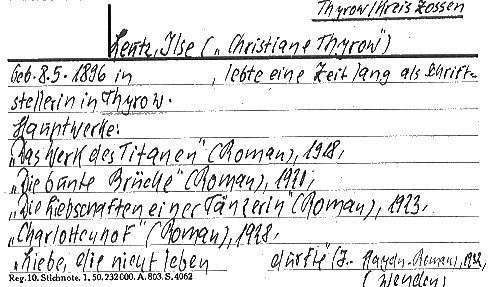 Thyrow/Kreis Zossen
Lentz, Ilse („Christiane Thyrow")
Geb. 8.5.1896 in , lebte eine Zeit lang als Schrift-
stellerin in Thyrow.
Hauptwerke:
„Das Werk des Titanen" (Roman), 1918,
„Die bunte Brücke" (Roman), 1921,
„Die Liebschaften einer Tänzerin" (Roman), 1923,
„Charlottenhof" (Roman), 1928,
„Liebe, die nicht leben durfte" (J. Haydn-Roman), 1932,
Reg. 10. Stichnote. 1. 50. 232 000. A. 803. S. 4062
(Wenden)